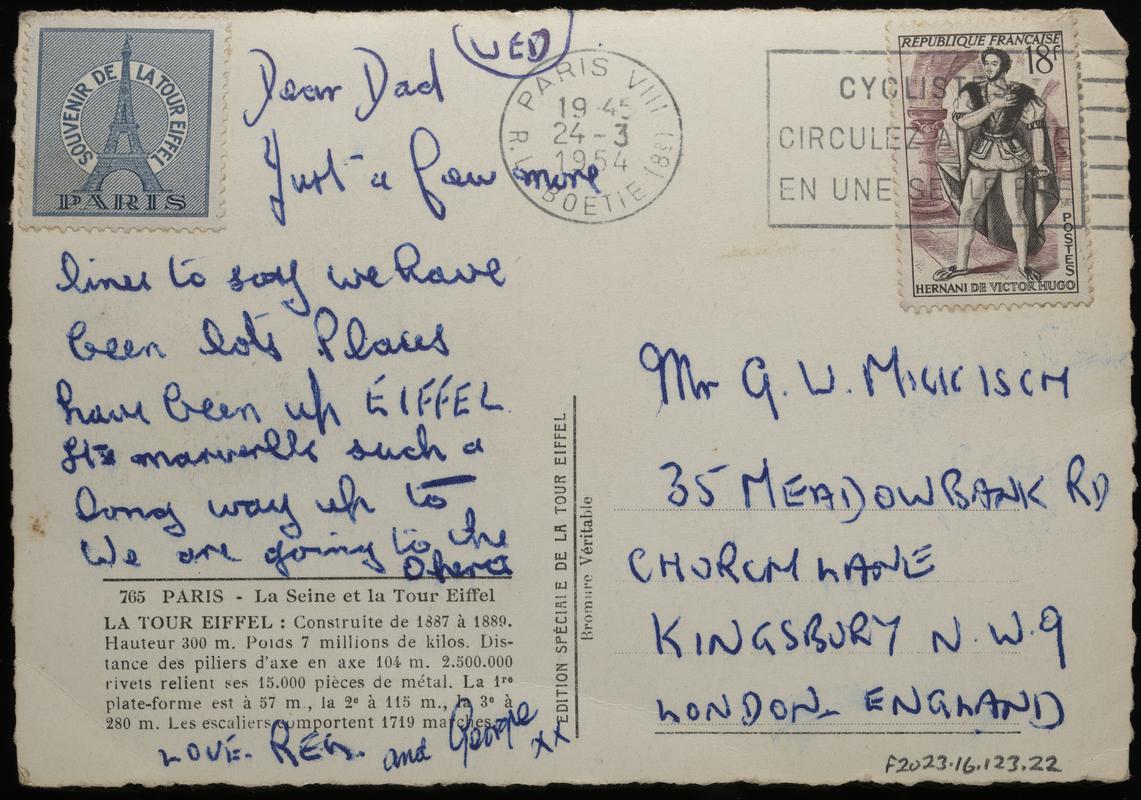 SOUVENIR DE LA TOUR EIFFEL
PARIS
WED
Dear Dad
Just a few more
lines to say we have
been lots Places
have been up EIFFEL
Its marvells such a
long way up to
We are going to the
Opera
765 PARIS - La Seine et la Tour Eiffel
LA TOUR EIFFEL : Construite de 1887 à 1889.
Hauteur 300 m. Poids 7 millions de kilos. Dis-
tance des piliers d'axe en axe 104 m. 2.500.000
rivets relient ses 15.000 pièces de métal. La 1re
plate-forme est à 57 m., la 2e à 115 m., la 3e à
280 m. Les escaliers comportent 1719 marches.
LOVE. REG. and George
xx
EDITION SPÉCIALE DE LA TOUR EIFFEL
Bromure Véritable
PARIS VIII
19-45
24-3
1954
R. LA BOETIE (8e)
CYCLISTES
CIRCULEZ A
EN UNE SE
REPUBLIQUE FRANÇAISE
18F
POSTES
HERNANI DE VICTOR HUGO
Mr G. W. MILKISCH
35 MEADOWBANK RD
CHURCH LANE
KINGSBURY N.W.9
LONDON ENGLAND
F2023.16.123.22